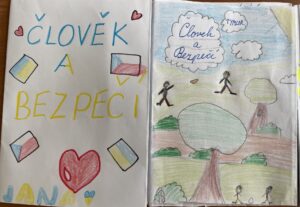 ČLOVĚK
A
BEZPEČÍ
JANA
Člověk
a
Bezpečí